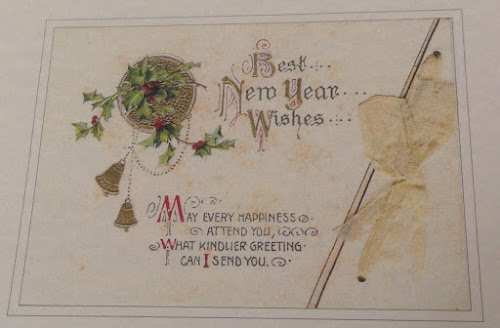 Best...
New Year...
Wishes...
May every happiness
attend you,
What kindlier greeting
can I send you.